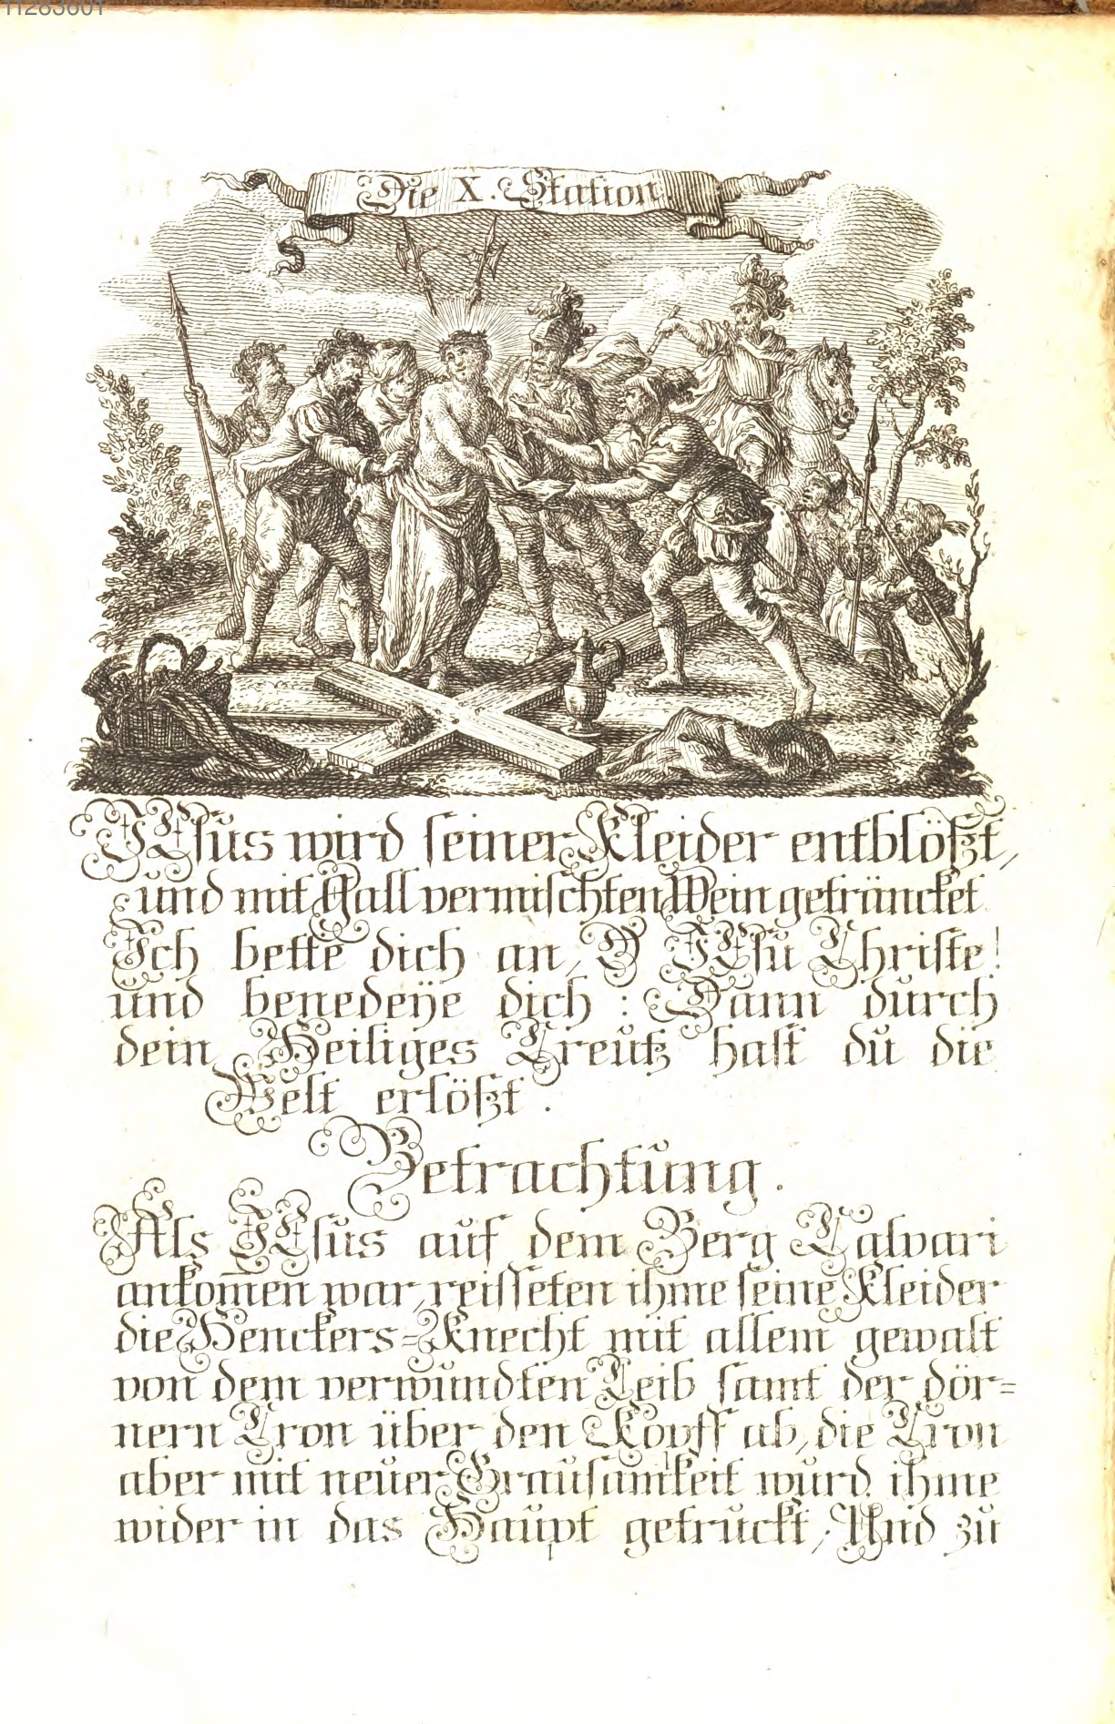 11283601
Die X. Station.
JEsus wird seiner Kleider entblößt,
und mit Gall vermischten Wein geträncket.
Ich bette dich an, O JEsu Christe!
und benedeÿe dich : Dann durch
dein Heiliges Creutz hast du die
Welt erlößt.
Betrachtung.
Als JEsus auf dem Berg Calvari
ankom̅en war, reisseten ihme seine Kleider
die Henckers=Knecht mit allem gewalt
von dem verwundten Leib samt der dör=
nern Cron über den Kopff ab, die Cron
aber mit neuer Grausamkeit wurd ihme
wider in das Haupt getruckt, Und zu